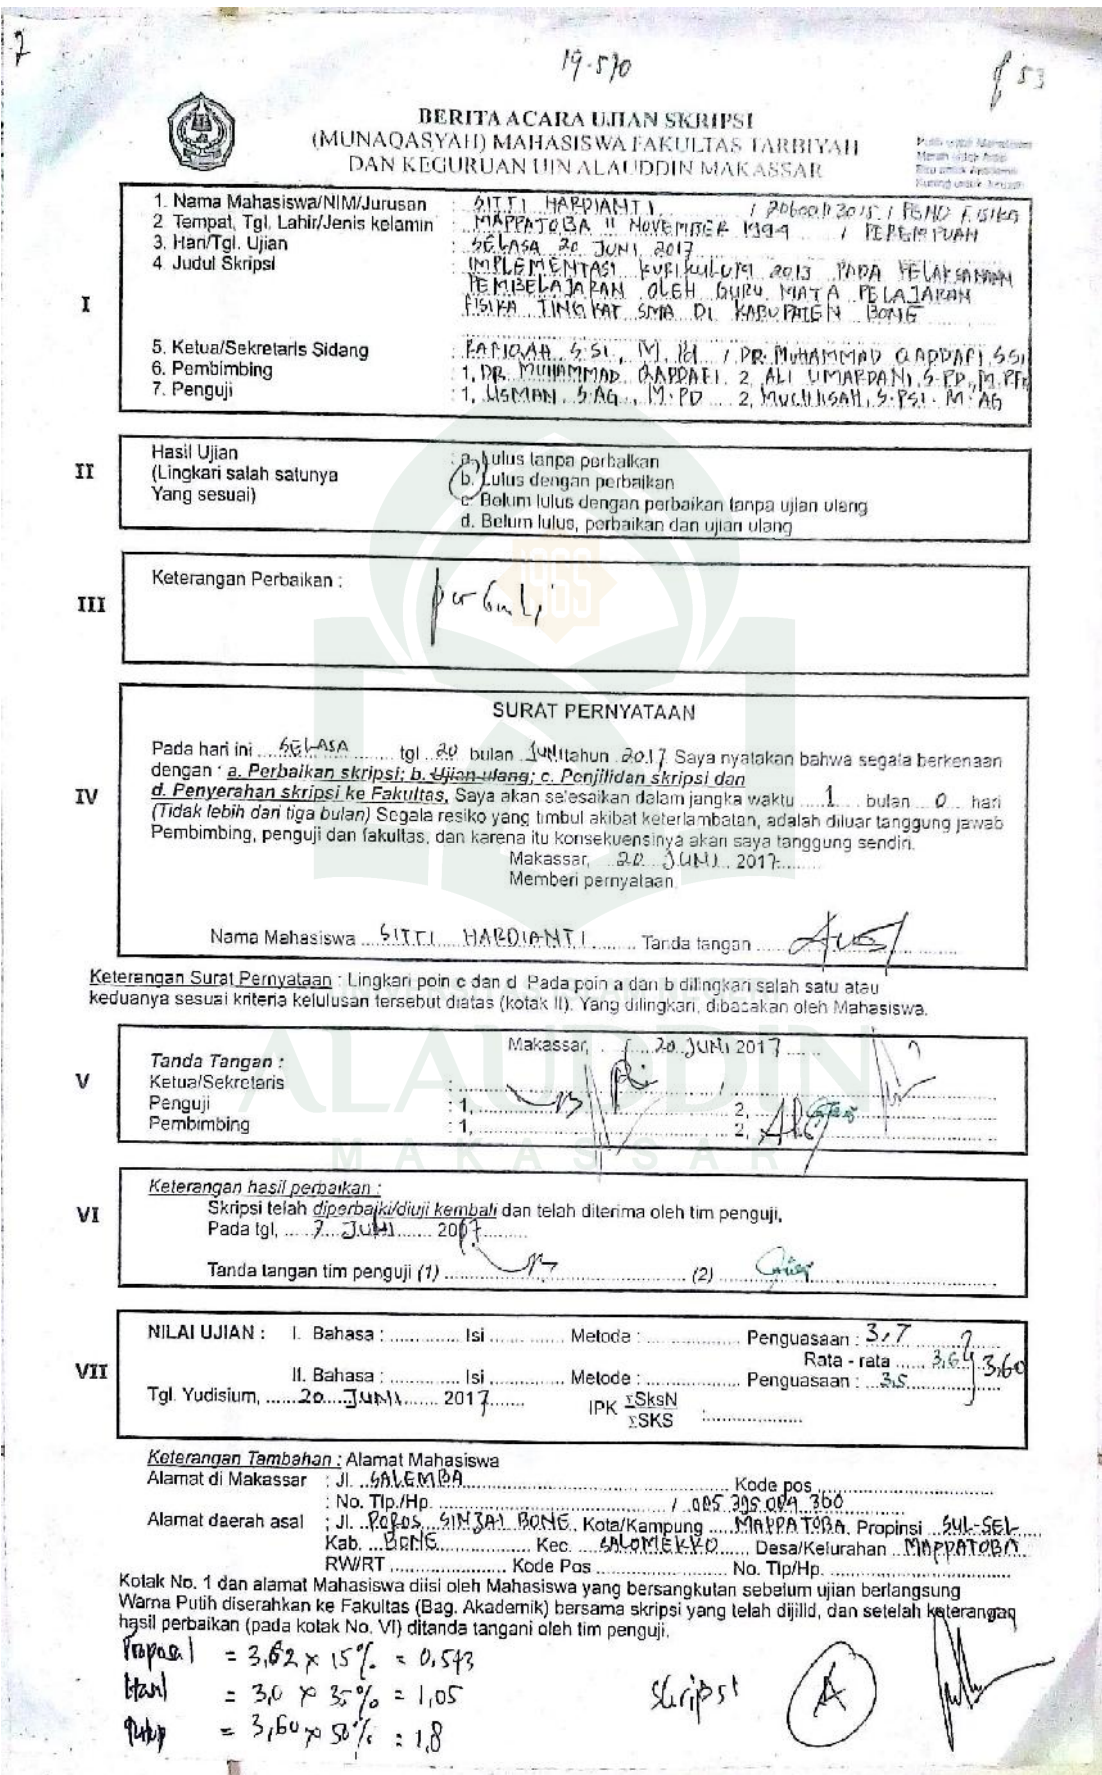 2
19-570
53
BERITA ACARA UJIAN SKRIPSI
(MUNAQASYAH) MAHASISWA FAKULTAS TARBIYAH
DAN KEGURUAN UIN ALAUDDIN MAKASSAR
I
1. Nama Mahasiswa/NIM/Jurusan : SITTI HARDIANTI / 20600113015 / PEND FISIKA
2 Tempat, Tgl. Lahir/Jenis kelamin : MAPPATOBA 11 NOVEMBER 1994 / PEREMPUAN
3. Hari/Tgl. Ujian : SELASA 20 JUNI 2017
4. Judul Skripsi : IMPLEMENTASI KURIKULUM 2013 PADA PELAKSANAAN
PEMBELAJARAN OLEH GURU MATA PELAJARAN
FISIKA TINGKAT SMA DI KABUPATEN BONE
5. Ketua/Sekretaris Sidang : RAFIQAH, S.SI., M.Pd / DR. MUHAMMAD QADDAFI, S.SI
6. Pembimbing : 1, DR. MUHAMMAD QADDAFI 2, ALI UMARDANI, S.PD., M.PFis
7. Penguji : 1, USMAN, S.AG., M.PD 2, MUCHLISAH, S.PSI. M.AG
II
Hasil Ujian : a. Lulus tanpa perbaikan
(Lingkari salah satunya b. Lulus dengan perbaikan
Yang sesuai) c. Belum lulus dengan perbaikan tanpa ujian ulang
d. Belum lulus, perbaikan dan ujian ulang
III
Keterangan Perbaikan :
1965
IV
SURAT PERNYATAAN
Pada hari ini SELASA tgl 20 bulan JUNI tahun 2017 Saya nyatakan bahwa segala berkenaan
dengan : a. Perbaikan skripsi; b. Ujian ulang; c. Penjilidan skripsi dan
d. Penyerahan skripsi ke Fakultas, Saya akan selesaikan dalam jangka waktu 1 bulan 0 hari
(Tidak lebih dari tiga bulan) Segala resiko yang timbul akibat keterlambatan, adalah diluar tanggung jawab
Pembimbing, penguji dan fakultas, dan karena itu konsekuensinya akan saya tanggung sendiri.
Makassar, 20 JUNI 2017
Memberi pernyataan,
Nama Mahasiswa SITTI HARDIANTI Tanda tangan
Keterangan Surat Pernyataan : Lingkari poin c dan d Pada poin a dan b dilingkari salah satu atau
keduanya sesuai kriteria kelulusan tersebut diatas (kotak II). Yang dilingkari, dibacakan oleh Mahasiswa.
ALAUDDIN
MAKASSAR
V
Makassar, 20 JUNI 2017
Tanda Tangan :
Ketua/Sekretaris :
Penguji : 1, 2,
Pembimbing : 1, 2,
VI
Keterangan hasil perbaikan :
Skripsi telah diperbaiki/diuji kembali dan telah diterima oleh tim penguji,
Pada tgl, 7 JUNI 2017
Tanda tangan tim penguji (1) (2)
VII
NILAI UJIAN : I. Bahasa : Isi Metode : Penguasaan : 3,7
Rata - rata 3,64 3,60
II. Bahasa : Isi Metode : Penguasaan : 3,5
Tgl. Yudisium, 20 JUNI 2017 IPK ΣSksN
ΣSKS :
Keterangan Tambahan : Alamat Mahasiswa
Alamat di Makassar : Jl. SALEMBA Kode pos
: No. Tlp./Hp. / 085 395 084 360
Alamat daerah asal : Jl. POROS SINJAI BONE Kota/Kampung MAPPATOBA Propinsi SUL-SEL
Kab. BONE Kec. SALOMEKKO Desa/Kelurahan MAPPATOBA
RW/RT Kode Pos No. Tlp/Hp.
Kotak No. 1 dan alamat Mahasiswa diisi oleh Mahasiswa yang bersangkutan sebelum ujian berlangsung
Warna Putih diserahkan ke Fakultas (Bag. Akademik) bersama skripsi yang telah dijilid, dan setelah keterangan
hasil perbaikan (pada kotak No. VI) ditanda tangani oleh tim penguji.
Proposal = 3,62 x 15% = 0,543
Hasil = 3,0 x 35% = 1,05
Tutup = 3,60 x 50% = 1,8
Skripsi A